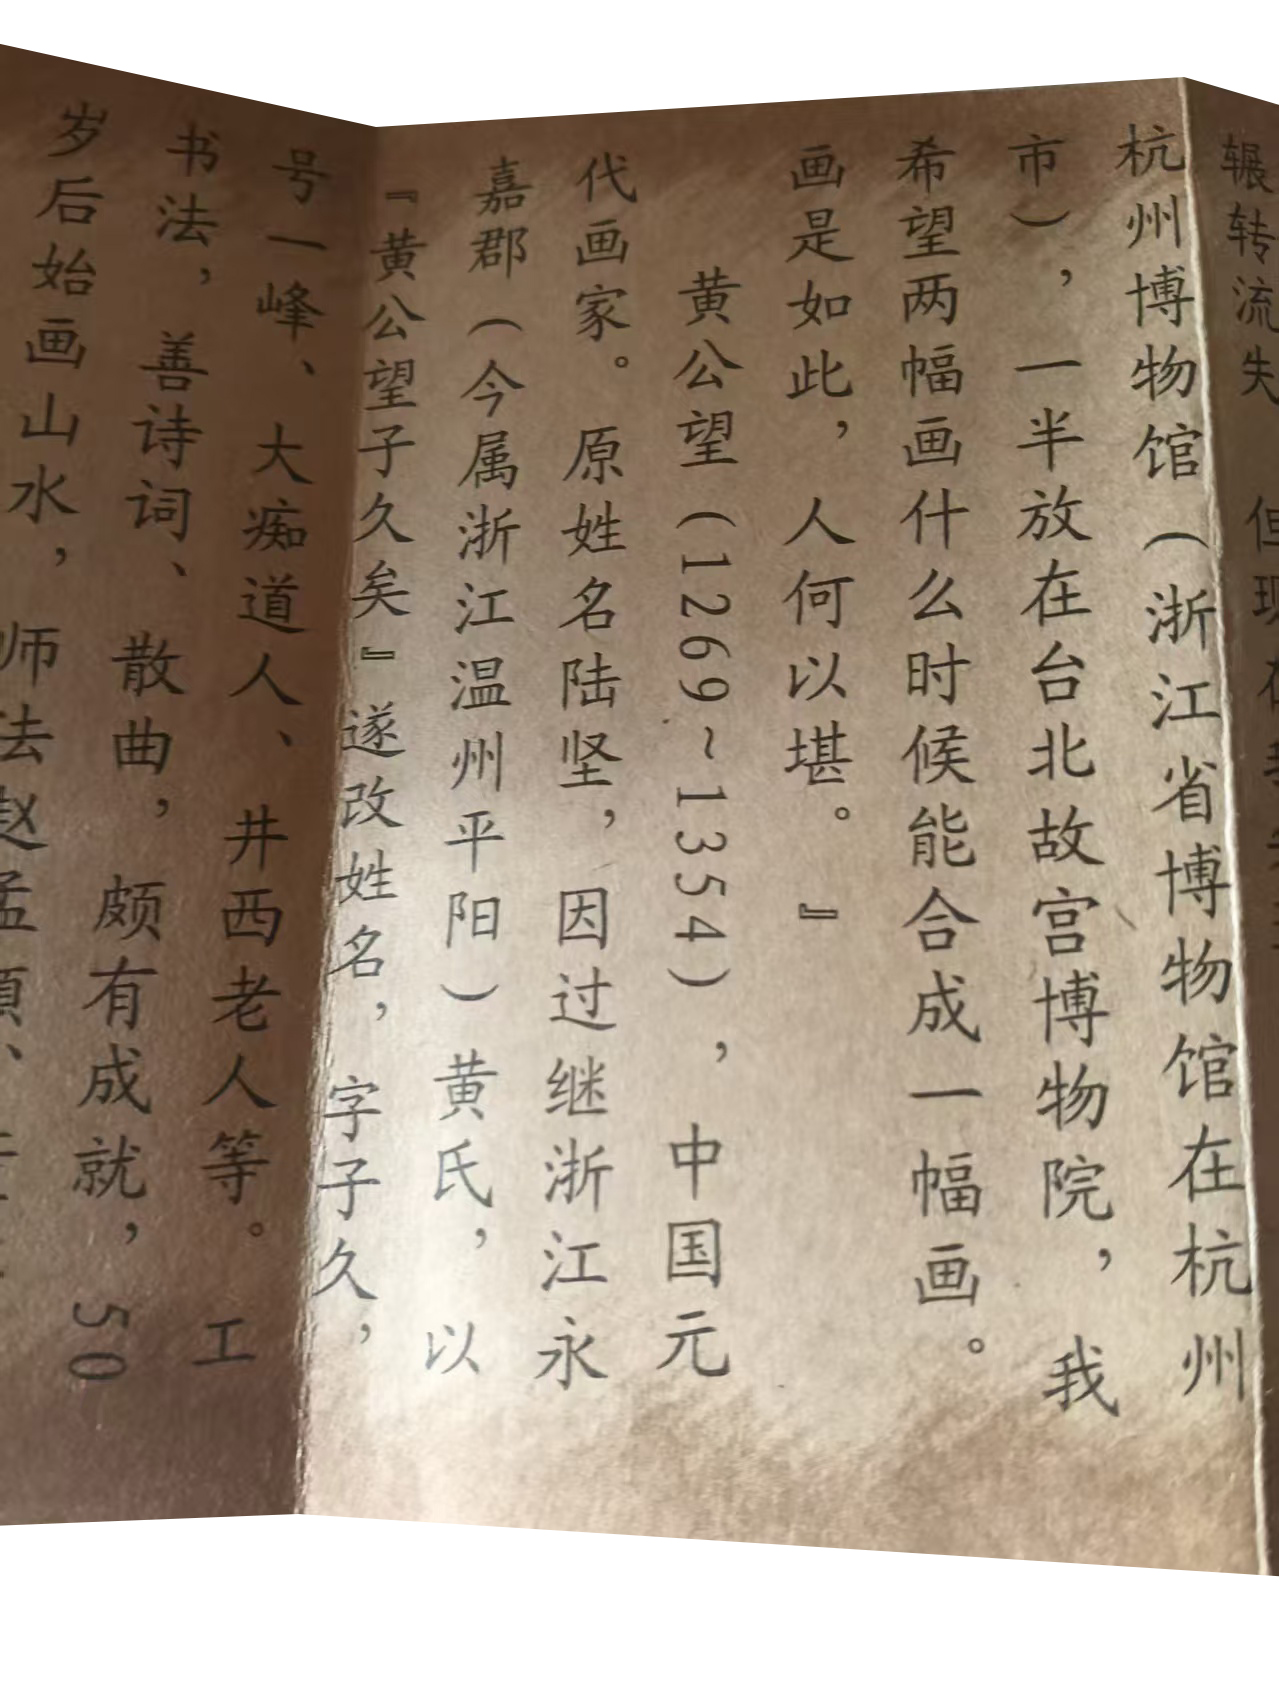 辗转流失 但现在我
杭州博物馆（浙江省博物馆在杭州
市），一半放在台北故宫博物院，我
希望两幅画什么时候能合成一幅画。
画是如此，人何以堪。』
黄公望（1269~1354），中国元
代画家。原姓名陆坚，因过继浙江永
嘉郡（今属浙江温州平阳）黄氏，以
『黄公望子久矣』遂改姓名，字子久，
号一峰、大痴道人、井西老人等。工
书法，善诗词、散曲，颇有成就，50
岁后始画山水，师法赵孟頫、